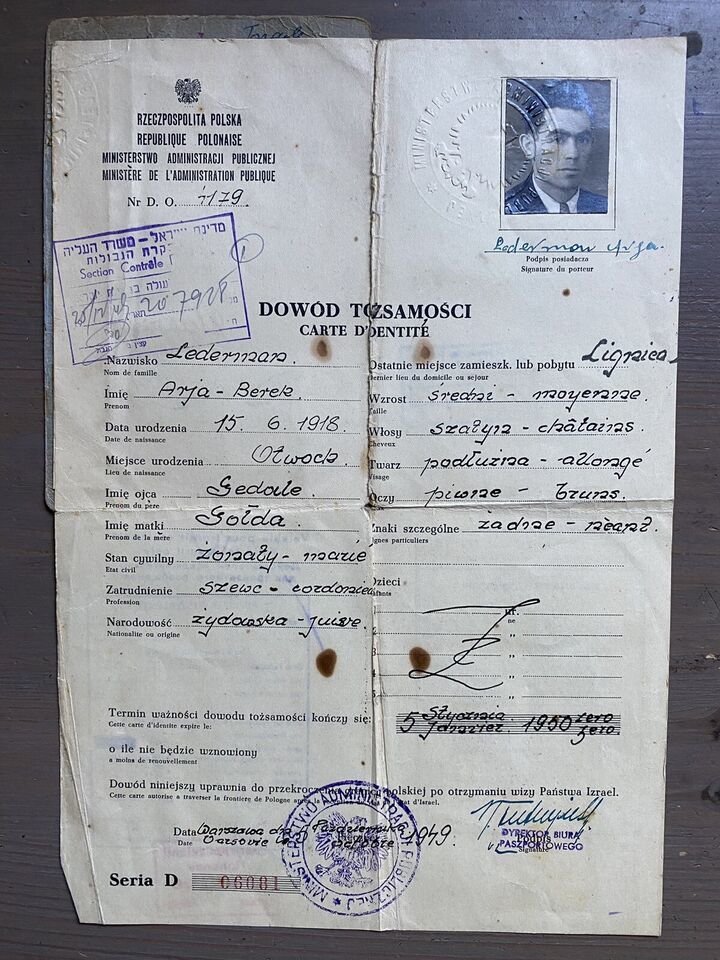 RZECZPOSPOLITA POLSKA
REPUBLIQUE POLONAISE
MINISTERSTWO ADMINISTRACJI PUBLICZNEJ
MINISTÈRE DE L'ADMINISTRATION PUBLIQUE
Nr D. O. 1179
מדינת ישראל – משרד העליה
Section Contrôle
Lederman Arja.
Podpis posiadacza
Signature du porteur
DOWÓD TOŻSAMOŚCI
CARTE D'IDENTITÉ
Nazwisko Lederman.
Nom de famille
Imię Arja - Berek.
Prenom
Data urodzenia 15. 6. 1918.
Date de naissance
Miejsce urodzenia Otwock.
Lieu de naissance
Imię ojca Gedale.
Prenom du père
Imię matki Gołda.
Prenom de la mère
Stan cywilny żonaty - marié
Etat civil
Zatrudnienie szewc - cordonier
Profession
Narodowość żydowska - juive.
Nationalite ou origine
Ostatnie miejsce zamieszk. lub pobytu Lignica
Dernier lieu du domicile ou sejour
Wzrost średni - moyenne.
Taille
Włosy szatyn - châtains
Cheveux
Twarz podłużna - allongé
Visage
Oczy piwne - bruns.
Znaki szczególne żadne - néant.
Signes particuliers
Dzieci
ur.
ne
2 "
3 "
4 "
5 "
Termin ważności dowodu tożsamości kończy się: 5 Stycznia 1950 zero
Cette carte d'identite expire le: Janvier zero
o ile nie będzie wznowiony
a moins de renouvellement
Dowód niniejszy uprawnia do przekroczenia polskiej po otrzymaniu wizy Państwa Izrael.
Cette carte autorise a traverser la frontiere de Pologne d'Israel.
Data Warszawa dn. 5 Października 1949.
Date Varsovie Octobre
MINISTERSTWO ADMINISTRACJI PUBLICZNEJ
DYREKTOR BIURA
PASZPORTOWEGO
Podpis
Signature
Seria D 06081